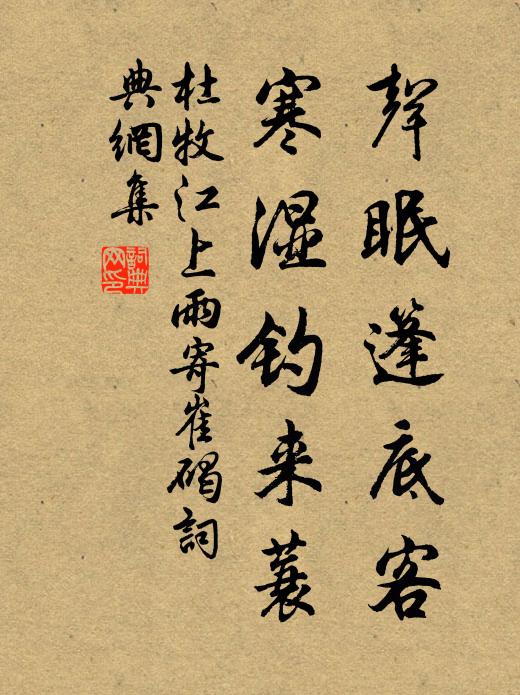 聲眠篷底客
寒湿钓来蓑
杜牧江上雨寄崔碣詞
典網集
詞典
网印